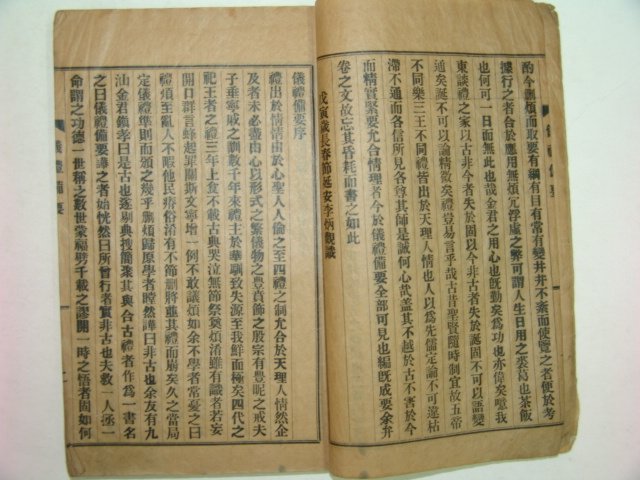 酌今刪煩而取要有綱有目有常有變井井不紊而使覽之者便於考
據行之者合於應用無煩冗浮虛之弊可謂人生日用之裘葛也茶飯
也何可一日而無此也哉金君之用心也旣勤矣爲功也亦偉矣噫我
東談禮之家以古非今者失於固以今非古者失於誕固不可以語變
通矣誕不可以論精微矣禮豈易言乎哉古昔聖賢隨時制宜故五帝
不同樂三王不同禮皆出於天理人情也人以爲先儒定論不可違枯
滯不通而各信所見各其師是誠何心哉盖其不越於古不害於今
而精實緊要允合情理者今於儀禮備要全部可見也編旣成要余弁
卷之文故忘其昏耗而書之如此
戊寅歲長春節延安李炳觀識
儀禮備要序
禮出於情情出於心聖人人倫之至四禮之制允合於天理人情然企
及者未必盡由心以形式之繁儀物之豊賁飾之殷宗有豊昵之戒夫
子垂寧戚之訓數千年來禮主於華馴致失源至我鮮而極矣四代之
祀王者之禮三年上食不載古典哭泣無節祭奠煩淆雖有識者若妄
開口群言蜂起罪關斯文寧增一例不敢議煩如余不學者常憂之曰
禮煩至亂人不暇他民瘠俗淆有不節刪將並其禮而崩矣久之當局
定儀禮準則而頒之幾乎刪煩歸原學者瞠然譁曰非古也余友有九
汕金君鎭孝曰是古也遂剔典搜簡聚其與合古禮者作爲一書名
之曰儀禮備要譁之者始恍然曰所曾行者實非古也夫敎一人丞一
命謂之功德一世稱之數世蒙福劈千載之謬開一時之悟者固如何
儀禮備要